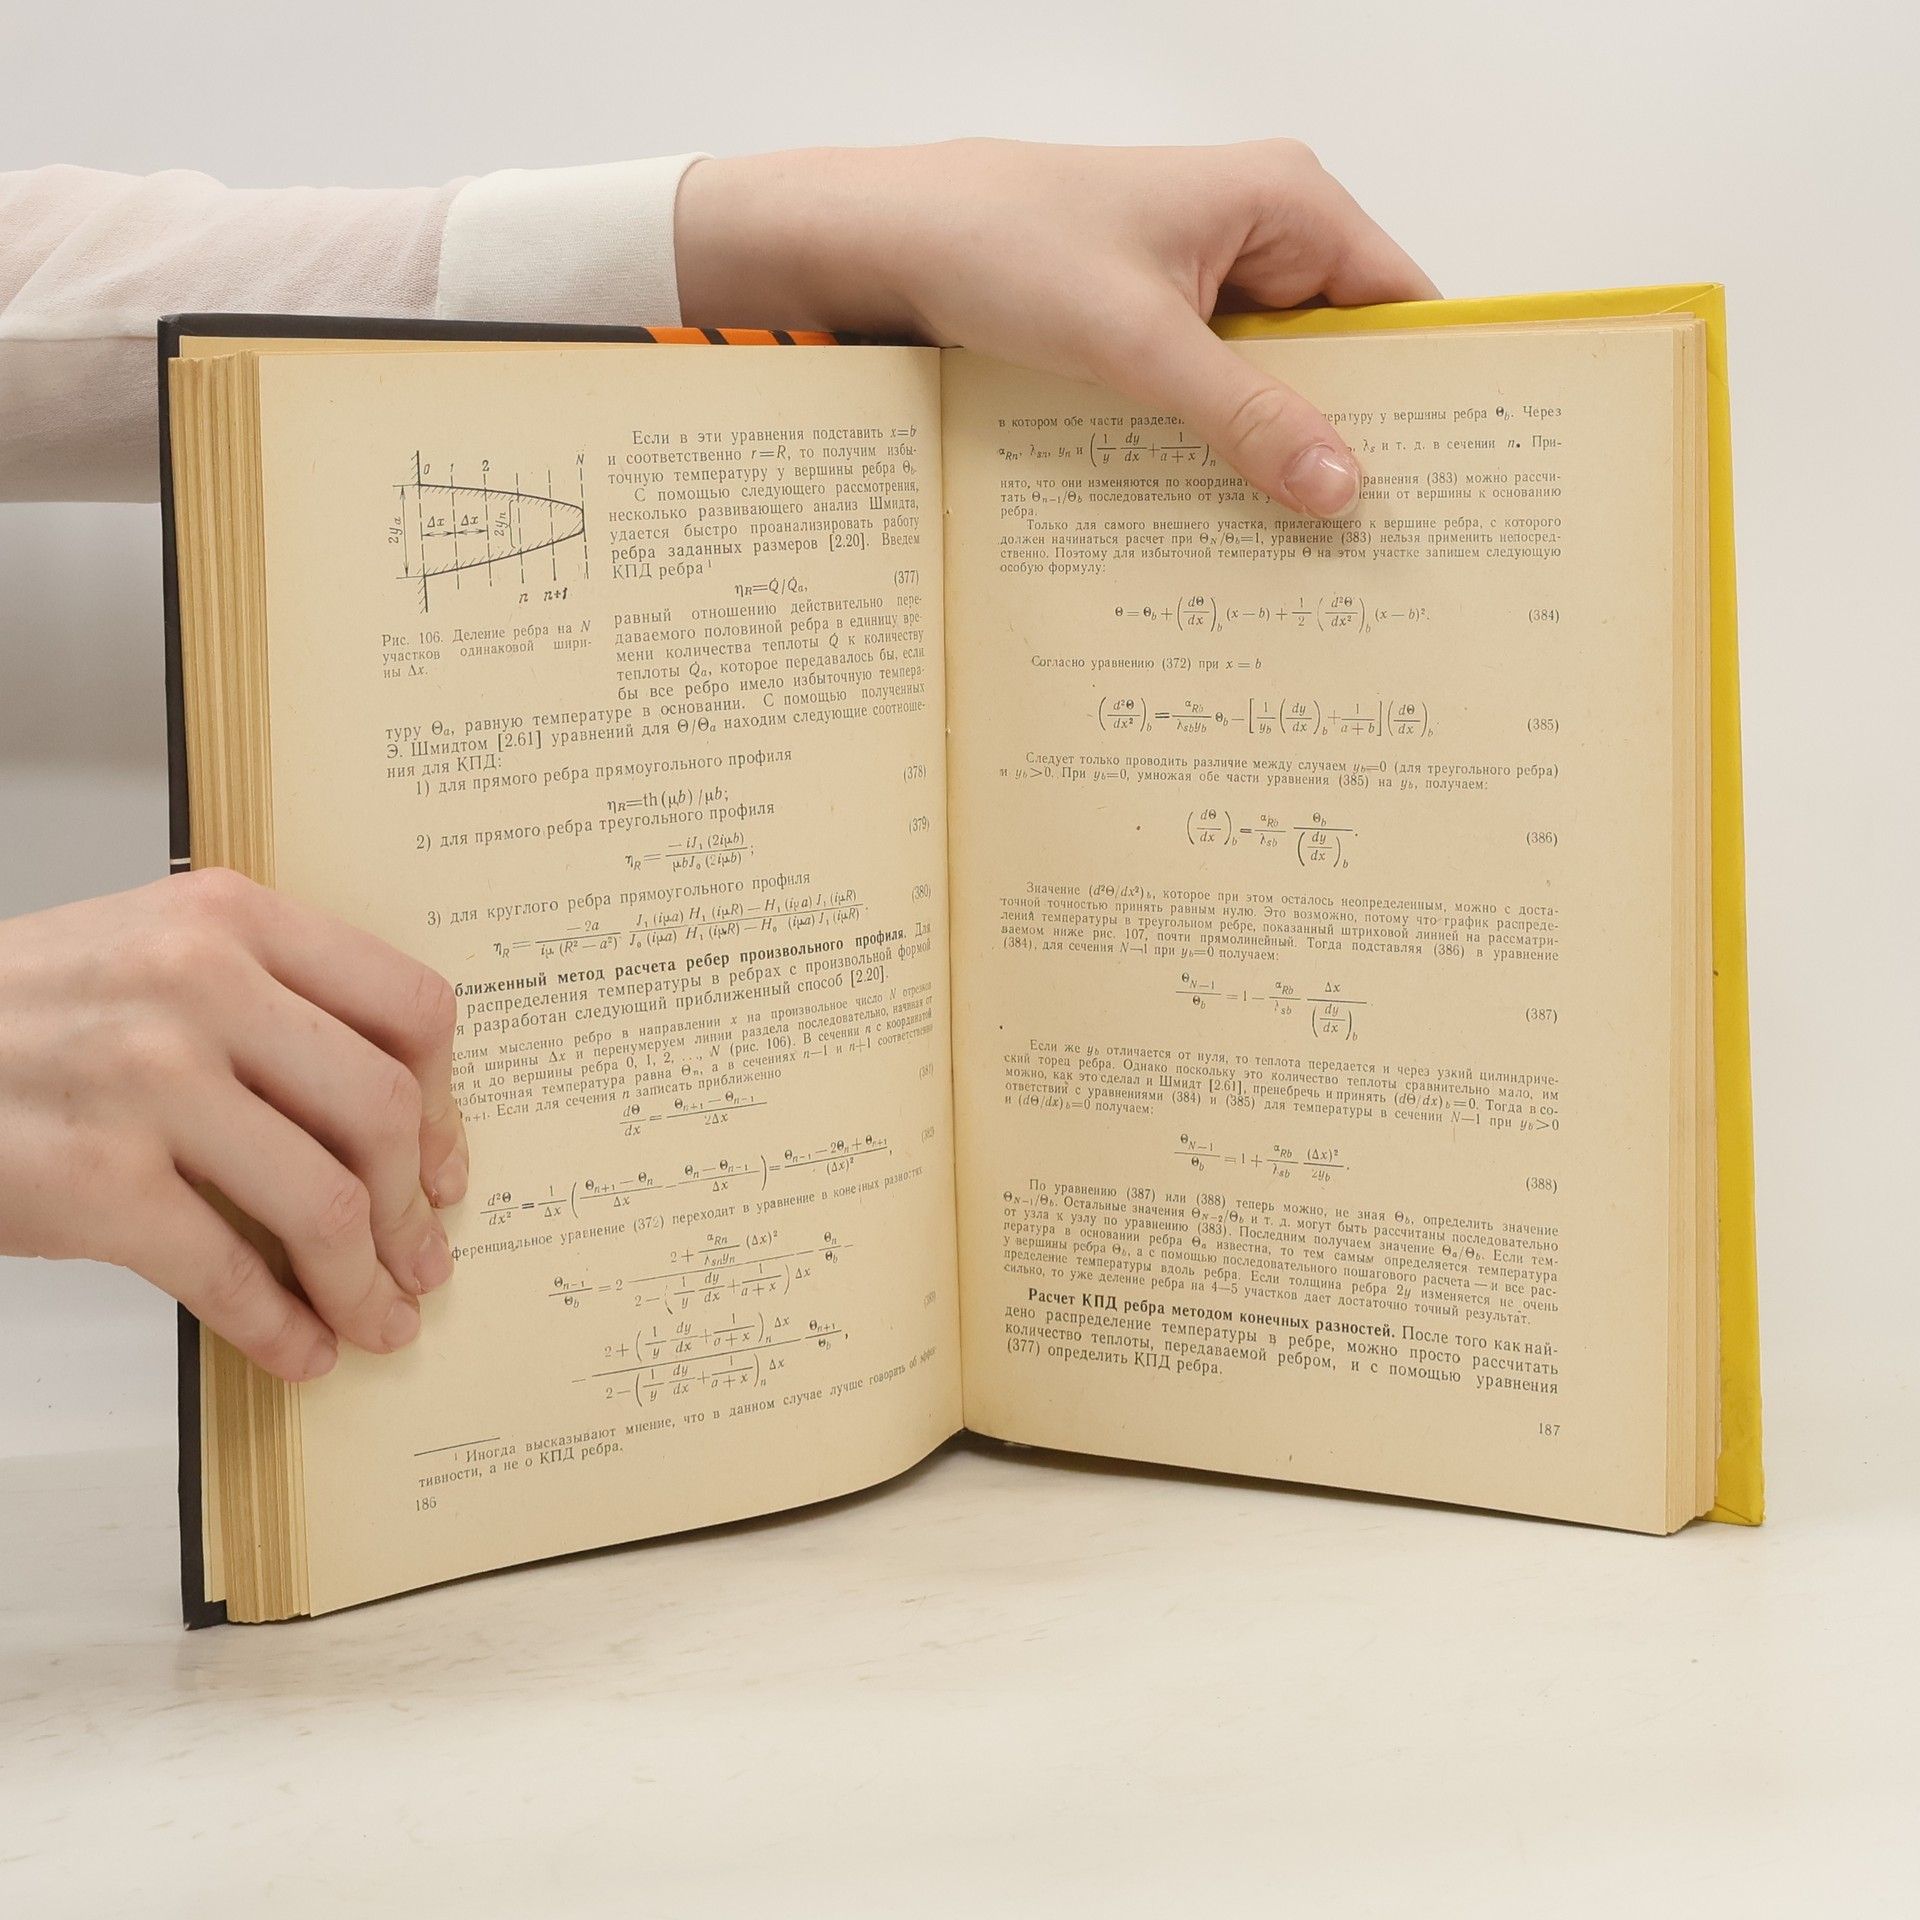 0 1 2 N
2yₐ Δx Δx 2yₙ
n n+1
Рис. 106. Деление ребра на N
участков одинаковой шири-
ны Δx.
Если в эти уравнения подставить x=b
и соответственно r=R, то получим избы-
точную температуру у вершины ребра Θb.
С помощью следующего рассмотрения,
несколько развивающего анализ Шмидта,
удается быстро проанализировать работу
ребра заданных размеров [2.20]. Введем
КПД ребра ¹
ηR=Q̇/Q̇ₐ, (377)
равный отношению действительно пере-
даваемого половиной ребра в единицу вре-
мени количества теплоты Q̇ к количеству
теплоты Q̇ₐ, которое передавалось бы, если
бы все ребро имело избыточную темпера-
туру Θₐ, равную температуре в основании. С помощью полученных
Э. Шмидтом [2.61] уравнений для Θ/Θₐ находим следующие соотноше-
ния для КПД:
1) для прямого ребра прямоугольного профиля
ηR=th (μb) /μb; (378)
2) для прямого ребра треугольного профиля
ηR = −iJ₁ (2iμb) / μbJ₀ (2iμb) ; (379)
3) для круглого ребра прямоугольного профиля
ηR = −2a / iμ (R² − a²) · J₁ (iμa) H₁ (iμR) − H₁ (iμa) J₁ (iμR) / J₀ (iμa) H₁ (iμR) − H₀ (iμa) J₁ (iμR) . (380)
ближенный метод расчета ребер произвольного профиля. Для
распределения температуры в ребрах с произвольной формой
я разработан следующий приближенный способ [2.20].
делим мысленно ребро в направлении x на произвольное число N отрезков
вой ширины Δx и перенумеруем линии раздела последовательно, начиная от
ия и до вершины ребра 0, 1, 2, ..., N (рис. 106). В сечении n с координатой
избыточная температура равна Θₙ, а в сечениях n−1 и n+1 соответственно
ₙ₊₁. Если для сечения n записать приближенно
dΘ/dx = (Θₙ₊₁ − Θₙ₋₁) / 2Δx (381)
d²Θ/dx² = 1/Δx ( (Θₙ₊₁ − Θₙ)/Δx − (Θₙ − Θₙ₋₁)/Δx ) = (Θₙ₋₁ − 2Θₙ + Θₙ₊₁) / (Δx)² , (382)
ференциальное уравнение (372) переходит в уравнение в конечных разностях
Θₙ₋₁/Θb = 2 (2 + αRn/λsnyn (Δx)²) / (2 − (1/y dy/dx + 1/(a + x)) Δx) Θₙ/Θb −
− (2 + (1/y dy/dx + 1/(a + x))ₙ Δx) / (2 − (1/y dy/dx + 1/(a + x))ₙ Δx) Θₙ₊₁/Θb , (383)
¹ Иногда высказывают мнение, что в данном случае лучше говорить об эффек-
тивности, а не о КПД ребра.
186
в котором обе части разделе пературу у вершины ребра Θb. Через
αRn, λsn, yn и (1/y dy/dx + 1/(a + x))ₙ λs и т. д. в сечении n. При-
нято, что они изменяются по координат равнения (383) можно рассчи-
тать Θₙ₋₁/Θb последовательно от узла к у ении от вершины к основанию
ребра.
Только для самого внешнего участка, прилегающего к вершине ребра, с которого
должен начинаться расчет при ΘN/Θb=1, уравнение (383) нельзя применить непосред-
ственно. Поэтому для избыточной температуры Θ на этом участке запишем следующую
особую формулу:
Θ = Θb + (dΘ/dx)b (x − b) + 1/2 (d²Θ/dx²)b (x − b)². (384)
Согласно уравнению (372) при x = b
(d²Θ/dx²)b = αRb/λsbyb Θb − [1/yb (dy/dx)b + 1/(a + b)] (dΘ/dx)b . (385)
Следует только проводить различие между случаем yb=0 (для треугольного ребра)
и yb>0. При yb=0, умножая обе части уравнения (385) на yb, получаем:
(dΘ/dx)b = αRb/λsb Θb/(dy/dx)b . (386)
Значение (d²Θ/dx²)b, которое при этом осталось неопределенным, можно с доста-
точной точностью принять равным нулю. Это возможно, потому что график распреде-
лений температуры в треугольном ребре, показанный штриховой линией на рассматри-
ваемом ниже рис. 107, почти прямолинейный. Тогда подставляя (386) в уравнение
(384), для сечения N−1 при yb=0 получаем:
ΘN−1/Θb = 1 − αRb/λsb Δx/(dy/dx)b . (387)
Если же yb отличается от нуля, то теплота передается и через узкий цилиндриче-
ский торец ребра. Однако поскольку это количество теплоты сравнительно мало, им
можно, как это сделал и Шмидт [2.61], пренебречь и принять (dΘ/dx)b=0. Тогда в со-
ответствии с уравнениями (384) и (385) для температуры в сечении N−1 при yb>0
и (dΘ/dx)b=0 получаем:
ΘN−1/Θb = 1 + αRb/λsb (Δx)²/2yb . (388)
По уравнению (387) или (388) теперь можно, не зная Θb, определить значение
ΘN−1/Θb. Остальные значения ΘN−2/Θb и т. д. могут быть рассчитаны последовательно
от узла к узлу по уравнению (383). Последним получаем значение Θₐ/Θb. Если тем-
пература в основании ребра Θₐ известна, то тем самым определяется температура
у вершины ребра Θb, а с помощью последовательного пошагового расчета — и все рас-
пределение температуры вдоль ребра. Если толщина ребра 2y изменяется не очень
сильно, то уже деление ребра на 4—5 участков дает достаточно точный результат.
Расчет КПД ребра методом конечных разностей. После того как най-
дено распределение температуры в ребре, можно просто рассчитать
количество теплоты, передаваемой ребром, и с помощью уравнения
(377) определить КПД ребра.
187